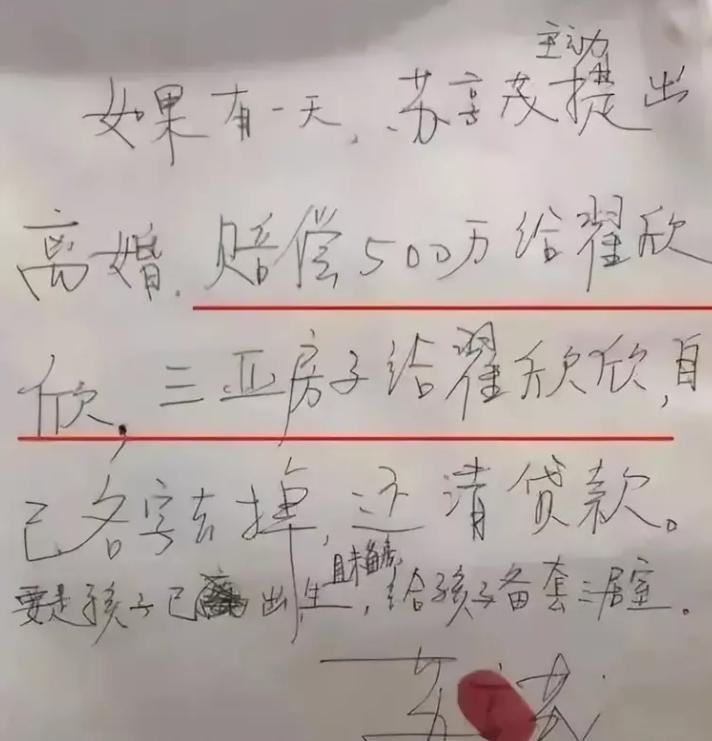 如果有一天,苏享茂主动提出
离婚,赔偿500万给翟欣
欣,三亚房子给翟欣欣,自
己名字去掉,还清贷款。
要是孩子已出生,且未备房,给孩子备套三居室。
苏茂